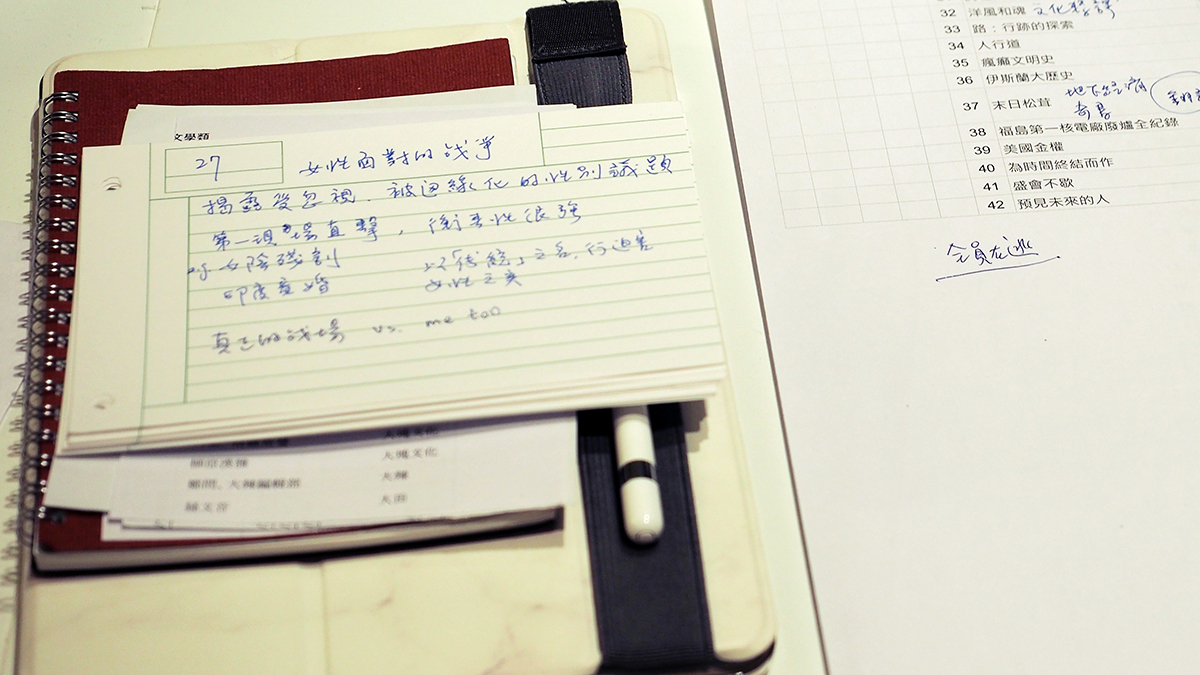 文學類
27 女性面對的战爭
揭露受忽視、被边緣化的性別議題
第一現場直擊，衝擊性很強
女陰殘割 以「傳統」之名，行迫害
印度童婚 女性之实
真正的战場 vs. me too
大塊文化
大塊文化
鄭問、大辣編輯部 大辣
32 洋風和魂 文化
33 路：行跡的探索
34 人行道
35 瘋癲文明史
36 伊斯蘭大歷史
37 末日松茸 地下经济
奇景
38 福島第一核電廠廢爐全紀錄
39 美國金權
40 為時間終結而作
41 盛會不歇
42 預見未來的人
全員在逃